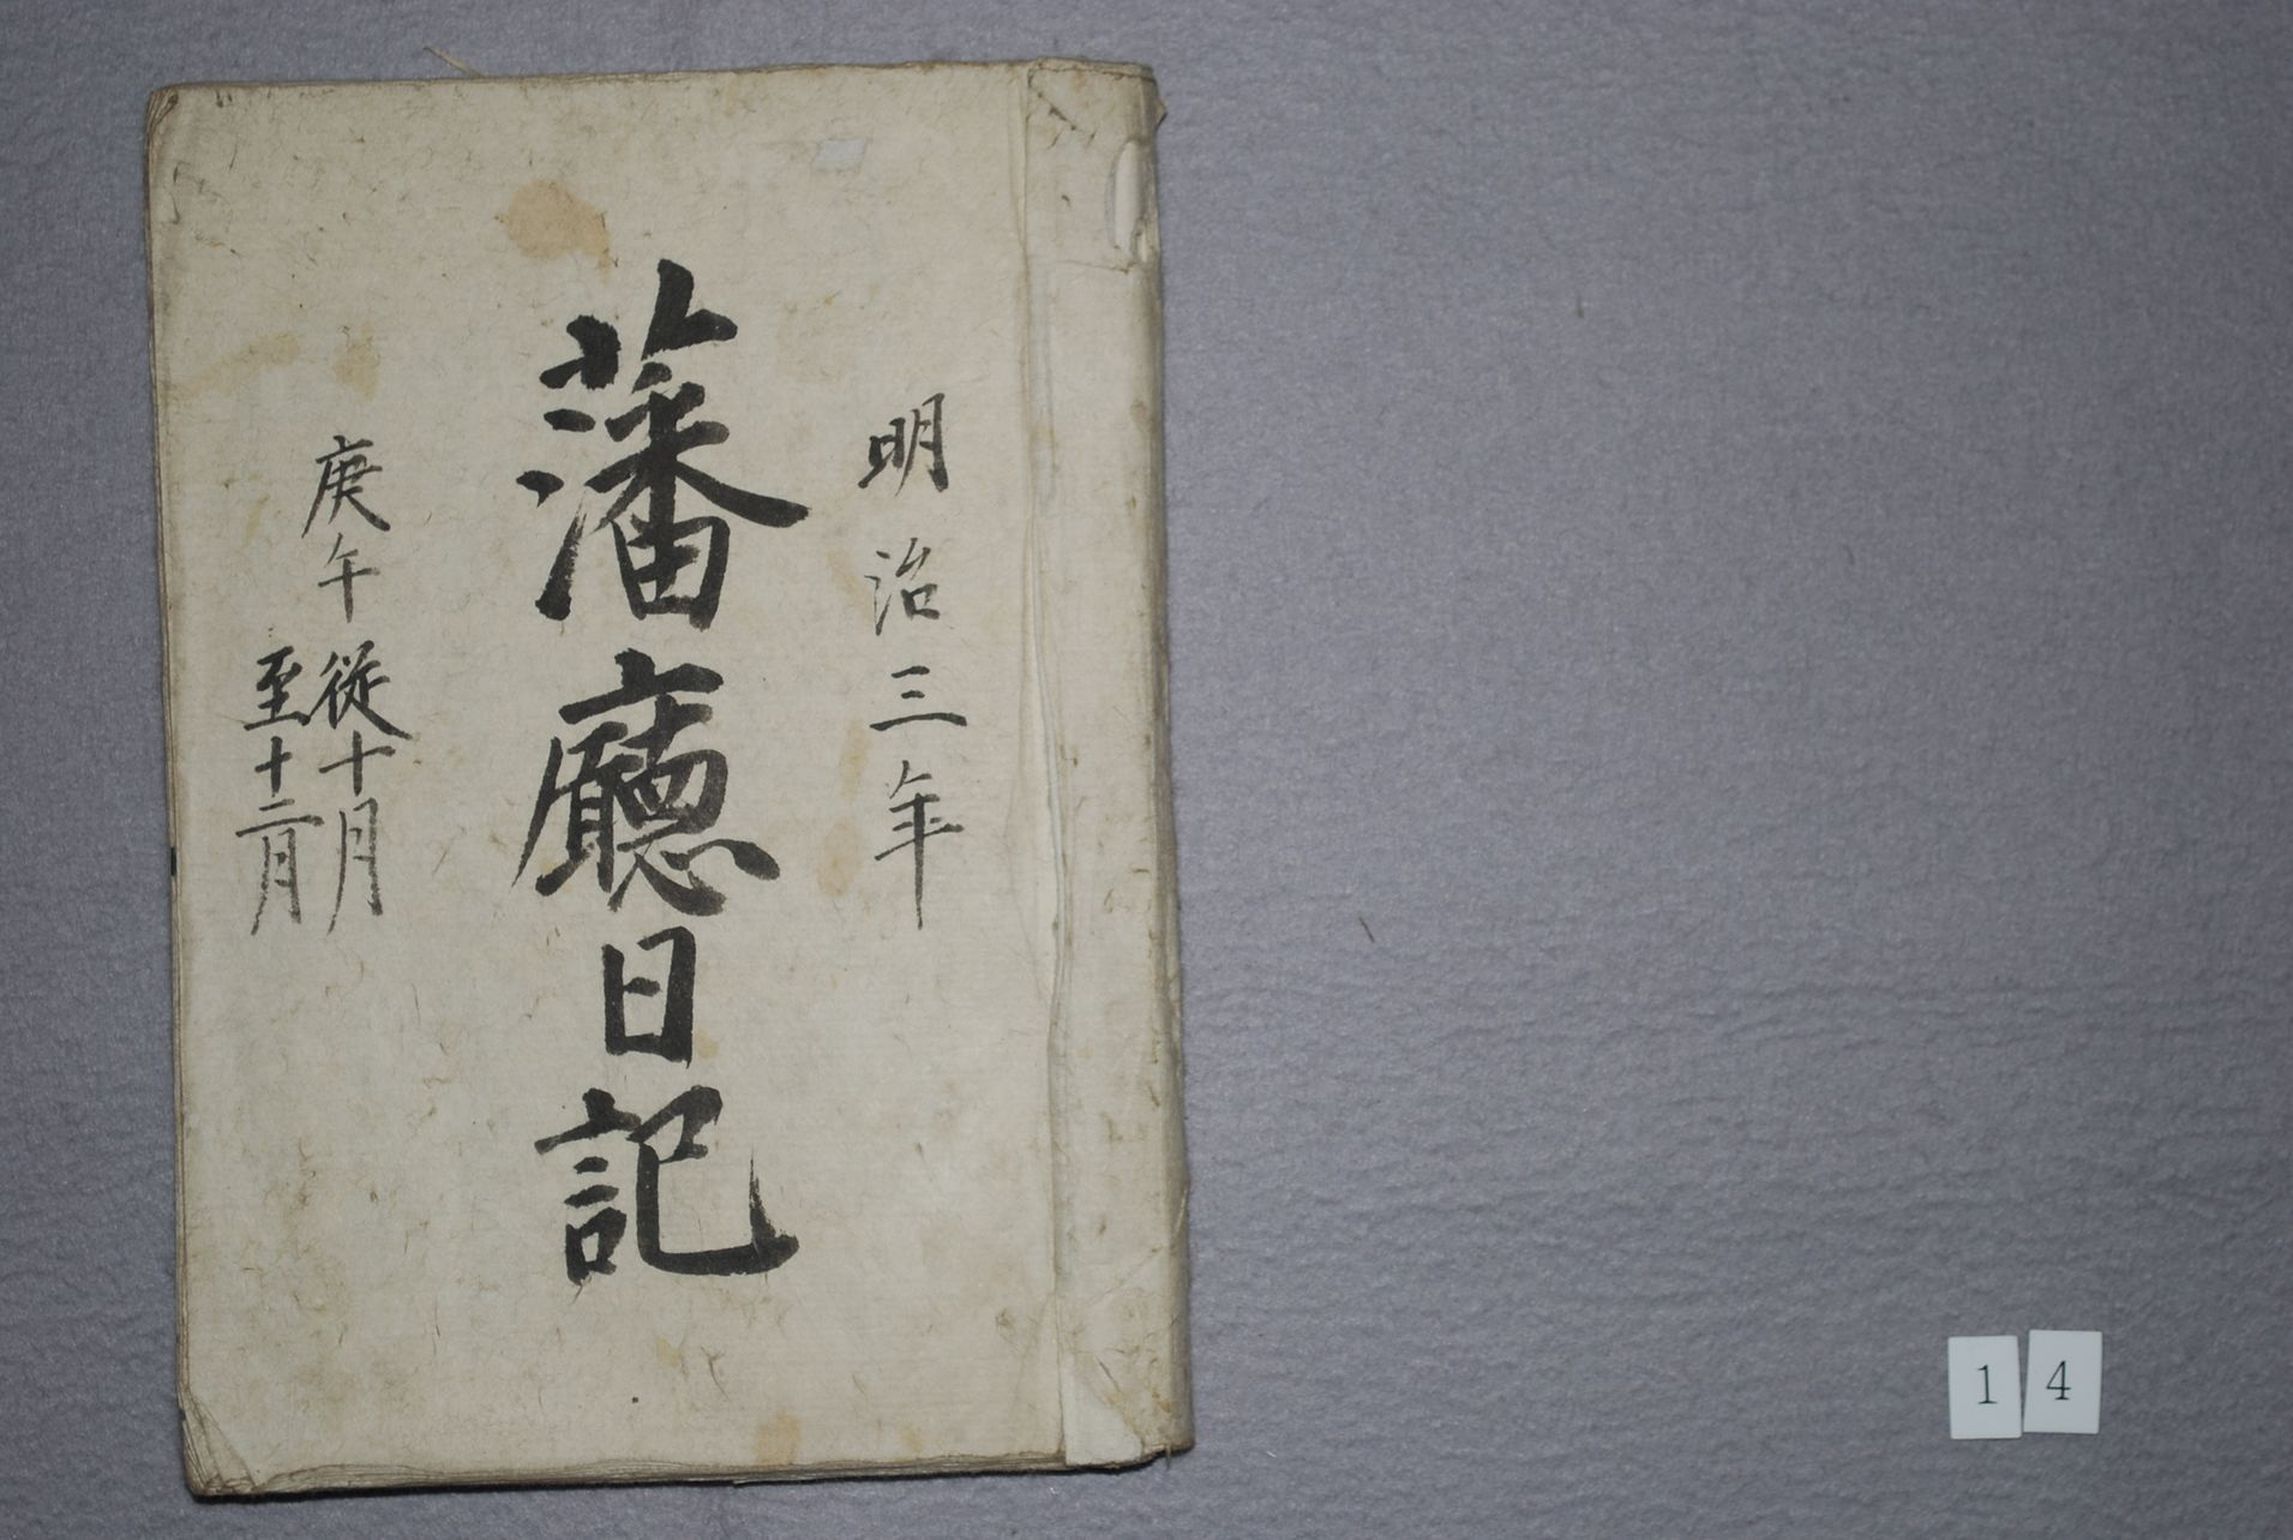 明治三年
藩廳日記
庚午
従十月
至十二月
14